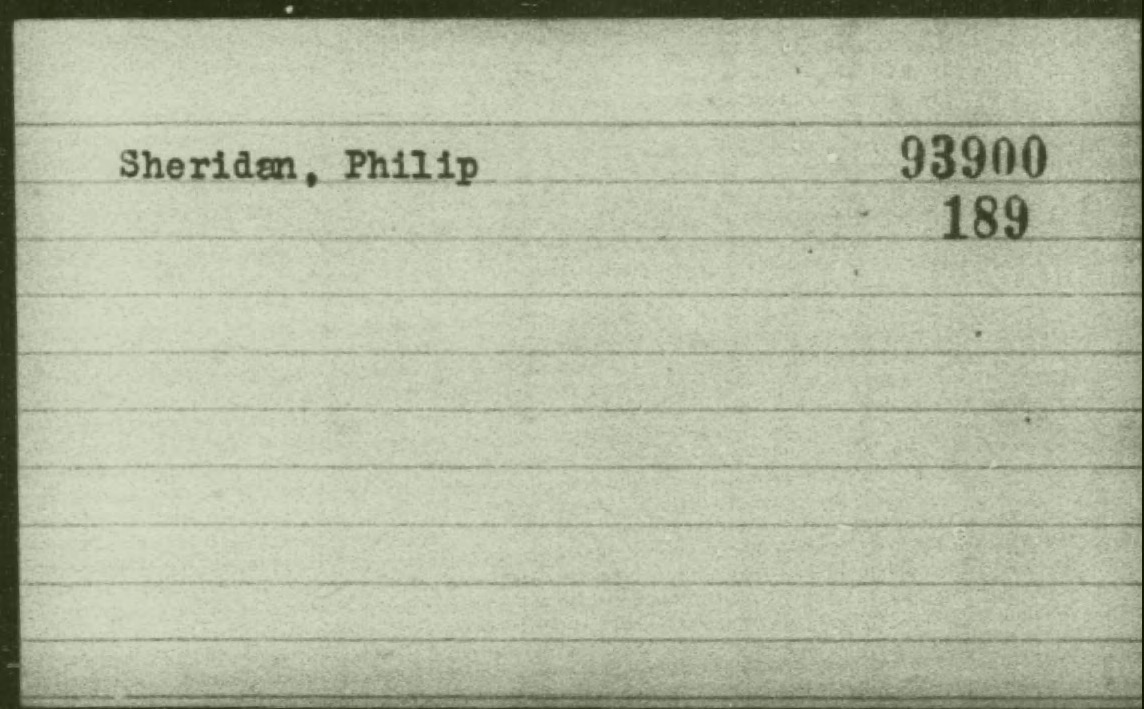 Sheridan, Philip 93900
189